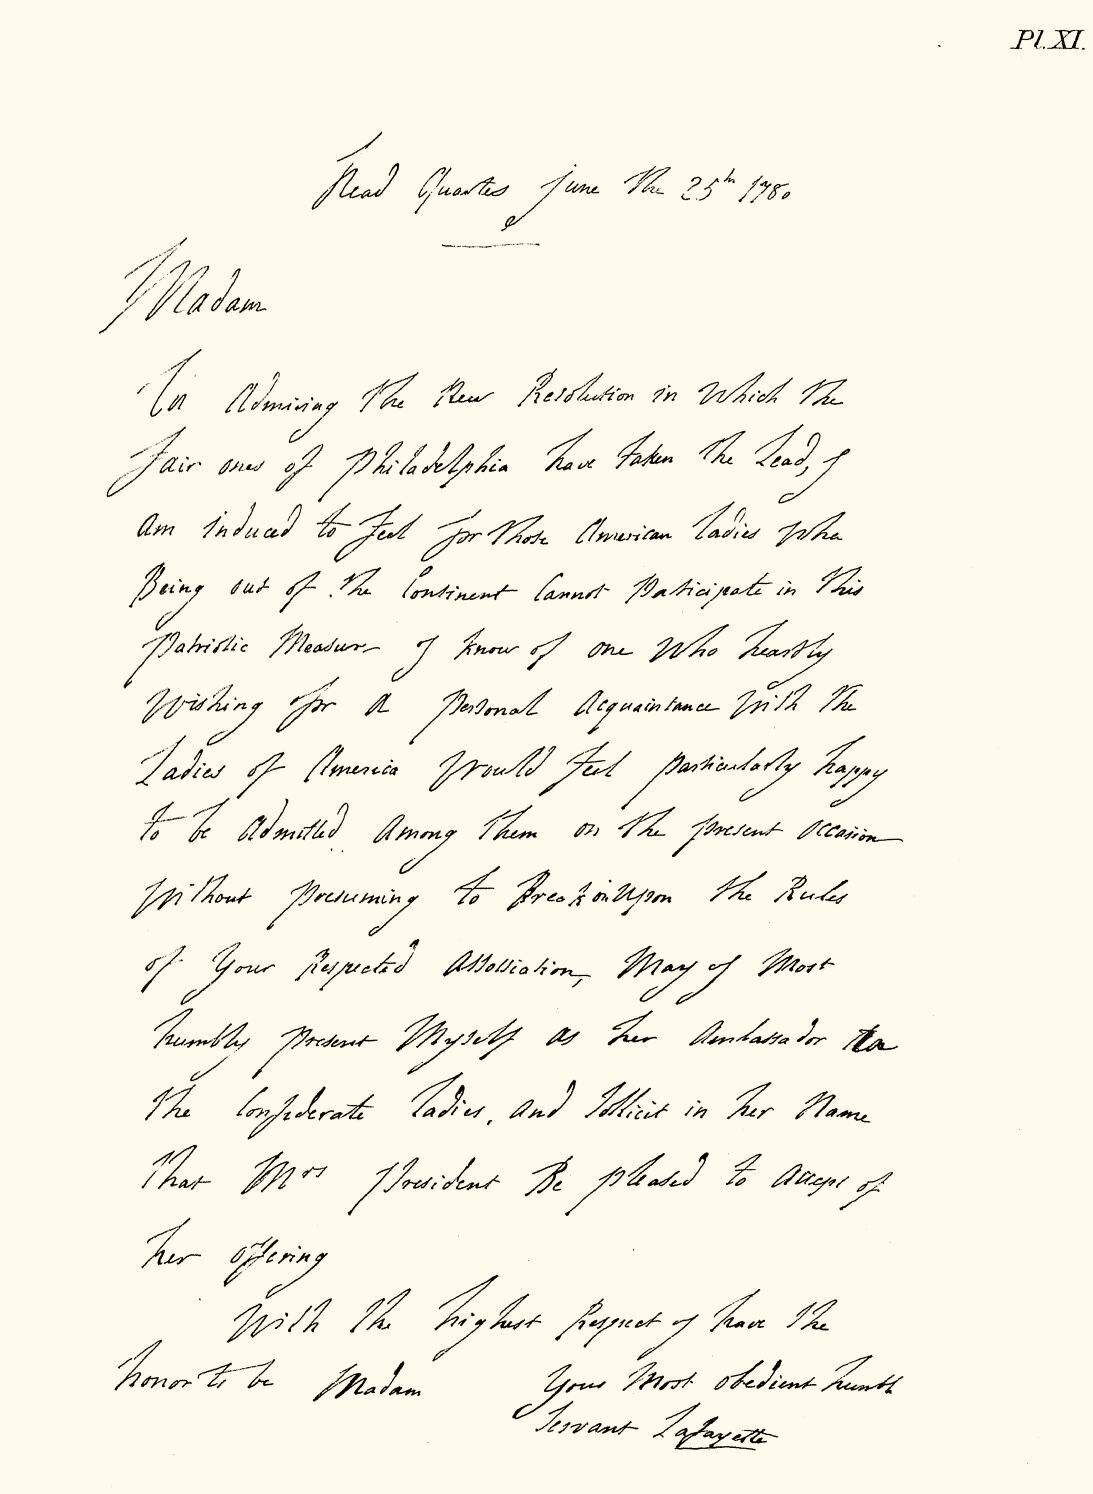 Pl. XI.
Head Quartes June the 25th 1780
Madam
In Admiring the New Resolution in Which the
fair ones of Philadelphia have taken the Lead, I
am induced to feel for those American Ladies who
Being out of the Continent Cannot Participate in this
patriotic Measure I know of one Who heartly
Wishing for a personal Acquaintance With the
Ladies of America Would feel particularly happy
to be Admitted Among them on the present occasion
Without presuming to Break in Upon the Rules
of Your Respected Assossiation, May I Most
humbly present Myself as her Ambassador to
the Confederate Ladies, and Sollicit in her Name
that Mrs President Be pleased to accept of
her offering
With the highest Respect I have the
honor to be Madam Your Most obedient humb
Servant Lafayette